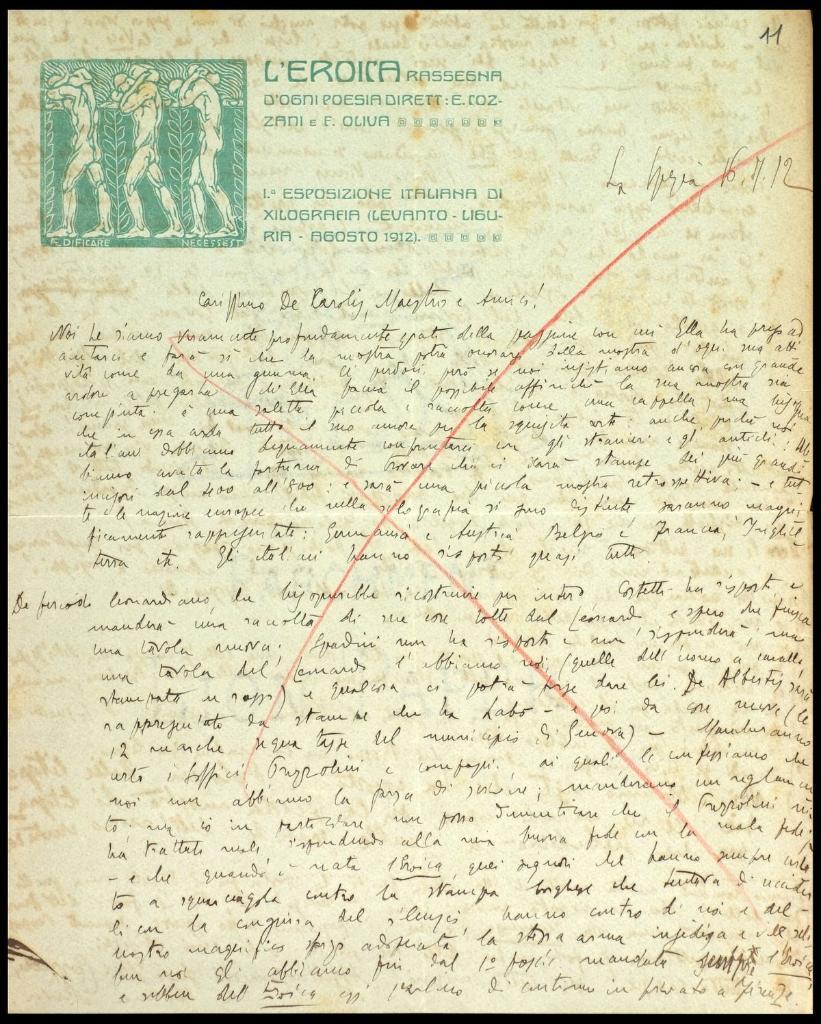 11
L'EROICA RASSEGNA
D'OGNI POESIA DIRETT: E. COZ-
ZANI E F. OLIVA
I.ª ESPOSIZIONE ITALIANA DI
XILOGRAFIA (LEVANTO - LIGU-
RIA - AGOSTO 1912).
ÆDIFICARE NECESSE EST
La Spezia 16.7.12
Carissimo De Karolis, Maestro e Amico!
Noi le siamo veramente profondamente grati della passione con cui Ella ha preso ad
aiutarci e farà sì che la mostra potrà onorarsi della mostra d'ogni sua atti
vità come da una gemma. Ci perdoni però se noi insistiamo ancora con grande
ardore a pregarla ch'Ella faccia il possibile affinché la sua mostra sia
compiuta: è una saletta piccola e raccolta come una cappella, ma bisogna
che in essa arda tutto il suo amore per la squisita arte: anche perché noi
italiani dobbiamo degnamente confrontarci con gli stranieri e gli antichi: Ab
biamo avuta la fortuna di trovare chi ci darà stampe dei più grandi
incisori dal 400 all'800: e sarà una piccola mostra retrospettiva: - e tut
te le nazioni europee che nella xilografia si sono distinte saranno magni
ficamente rappresentate: Germania e Austria, Belgio e Francia, Inghil
terra etc. Gli italiani hanno risposto quasi tutti.
De periodo leonardiano, che bisognerebbe ricostruire per intero Costetti ha risposto e
manderà una raccolta di sue cose tolte dal Leonardo e spero che finisca
una tavola nuova; Spadini non ha risposto e non risponderà; ma
una tavola del Leonardo l'abbiamo noi, (quella dell'uomo a cavallo
stampata in rosso) e qualcosa ci potrà forse dare lei. De Albertis sarà
rappresentato da stampe che ha Labò - e poi da cose nuove (le
12 marche segna tasse del municipio di Genova) - Mancheranno
certo i Soffici Prezzolini e compagni. ai quali le confessiamo che
noi non abbiamo la forza di scrivere; manderemo un regolamen
to; ma io in particolare non posso dimenticare che il Prezzolini mi
ha trattato male rispondendo alla mia buona fede con la mala fede;
- e che quando è nata l'Eroica, quei signori che hanno sempre urla
to a squarciagola contro la stampa borghese che tentava d'ucider
li con la congiura del silenzio hanno contro di noi e del
nostro magnifico sforzo adoperata la stessa arma insidiosa e vile seb
ben noi gli abbiamo fin dal 1º fascic. mandata sempre l'Eroica
e sebben dell'Eroica essi parlino di continuo in privato a Firenze.